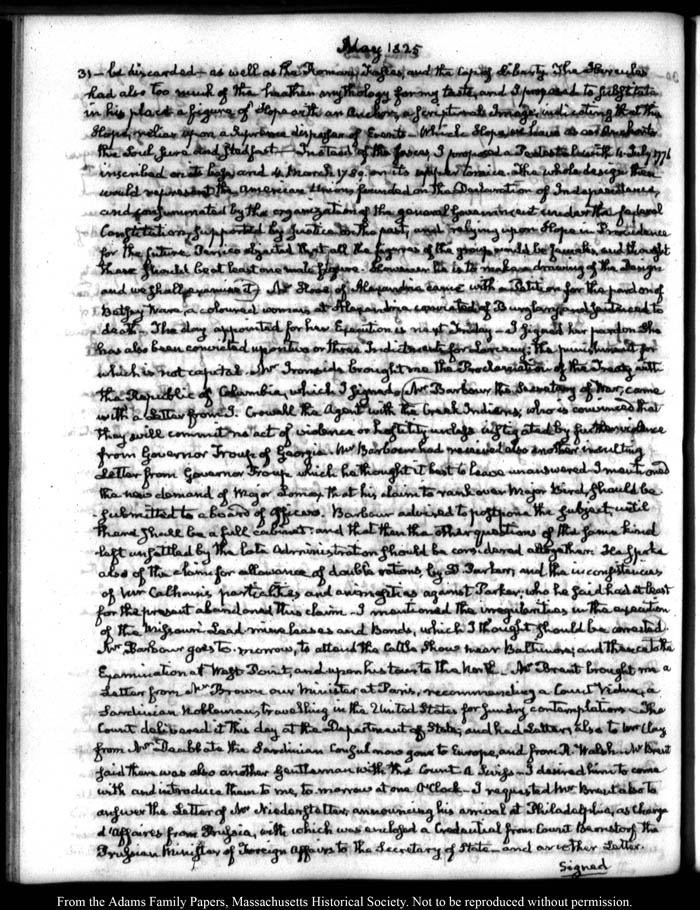 May 1825
31 — be discarded — as well as the Roman Fasces, and the Cap of Liberty. The Hercules
had also too much of the heathen mythology for my taste, and I proposed to substitute
in his place a figure of Hope with an Anchor, a Scriptural Image, indicating that this
Hope relies upon a Supreme disposer of Events — Which Hope we have as an Anchor to
the Soul, sure and stedfast — Instead of the fasces, I proposed a Pedestal with 4. July. 1776
inscribed on its base, and 4. March 1789. on its upper cornice. The whole design then
would represent the American Union, founded on the Declaration of Independence,
and consummated by the organization of the general Government under the federal
Constitution, supported by Justice in the past, and relying upon Hope in Providence
for the future. Persico objected that all the figures of the group would be females, and thought
there should be at least one male figure. However he is to make a drawing of the Design
and we shall examine it) Mr of Alexandria came with a Petition for the pardon of
Betsey Ware, a coloured woman at Alexandria convicted of Burglary, and sentenced to
death — The day appointed for her Execution is next Friday — I signed her pardon. She
has also been convicted upon two or three Indictments for Larceny; the punishment for
which is not capital. Mr Ironside brought me the Proclamation of the Treaty with
the Republic of Columbia, which I signed. (Mr Barbour the Secretary of War, came
with a Letter from J. Crowell the Agent with the Creek Indians, who is convinced that
they will commit no act of violence or hostility, unless instigated by further violence
from Governor Troup of Georgia. Mr Barbour had received also another insulting
Letter from Governor Troup which he thought it best to leave unanswered. I mentioned
the new demand of Major Lomax that his claim to rank over Major Bird, should be
submitted to a board of Officers. Barbour advised to postpone the subject, until
there shall be a full cabinet: and that then the other questions of the same kind
left unsettled by the late Administration should be considered altogether. He spoke
also of the claim for allowance of double rations, by D. Parker, and the inconsistencies
of Mr Calhoun's partialities and animosities against Parker; who he said had at least
for the present abandoned this claim. I mentioned the irregularities in the execution
of the Missouri Lead mine leases and Bonds, which I thought should be arrested.
Mr Barbour goes to-morrow, to attend the Cattle Show near Baltimore, and thence to the
Examination at West Point, and upon his tour to the North — Mr Brent brought me a
Letter from Mr Brown our Minister at Paris, recommending a Count Vidua, a
Sardinian Nobleman, travelling in the United States for sundry contemplations — The
Count delivered it this day at the Department of State, and had Letters also to Mr Clay
from Mr Deabbate the Sardinian Consul now gone to Europe, and from R. Walsh. Mr Brent
said there was also another Gentleman with the Count a Swiss — I desired him to come
with and introduce them to me, to morrow at one O'Clock — I requested Mr Brent also to
answer the Letter of Mr Niederstetter, announcing his arrival at Philadelphia, as Chargé
d'Affaires from Prussia, with which was enclosed a Credential from Count Bernstorf the
Prussian Minister of Foreign Affairs to the Secretary of State — and another Letter.
Signed
From the Adams Family Papers, Massachusetts Historical Society. Not to be reproduced without permission.